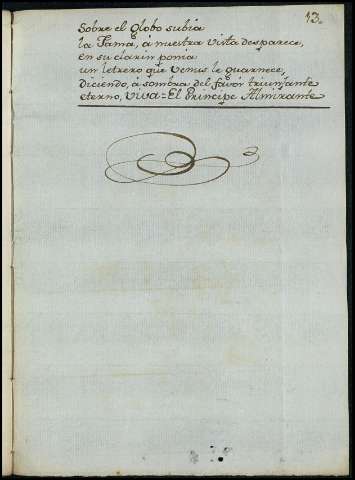 13.
Sobre el Globo subia
la Fama, á nuestra vista desparece,
en su clarin ponia
un letrero que Venus le guarnece,
Diciendo, á sombra del favor triunfante
eterno, viva = El Principe Almirante